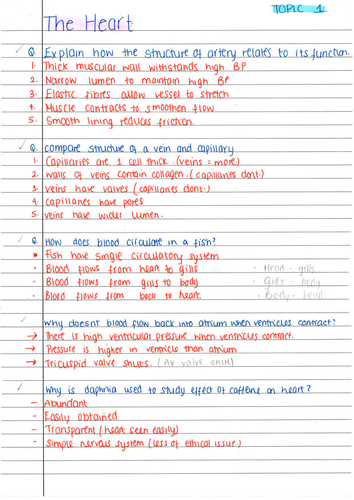 TOPIC 1
The Heart
Q. Explain how the structure of artery relates to its function.
1. Thick muscular wall withstands high BP
2. Narrow lumen to maintain high BP
3. Elastic fibres allow vessel to stretch
4. Muscle contracts to smoothen flow
5. Smooth lining reduces friction.
Q. compare structure of a vein and capillary
1. Capillaries are 1 cell thick. (veins = more)
2. walls of veins contain collagen. (capillaries dont.)
3. veins have valves (capillaries dont.)
4. capillaries have pores
5. veins have wider lumen.
Q. How does blood circulate in a fish?
• Fish have single circulatory system
• Blood flows from heart to gills • Head - gills
• Blood flows from gills to body • Gills - body
• Blood flows from back to heart. • Body - head
Why doesnt blood flow back into atrium when ventricles contract?
→ There is high ventricular pressure when ventricles contract.
→ Pressure is higher in ventricle than atrium
→ Tricuspid valve shuts. (AV valve shut)
Why is daphnia used to study effect of caffeine on heart?
- Abundant
- Easily obtained
- Transparent (heart seen easily)
- Simple nervous system (less of ethical issue.)